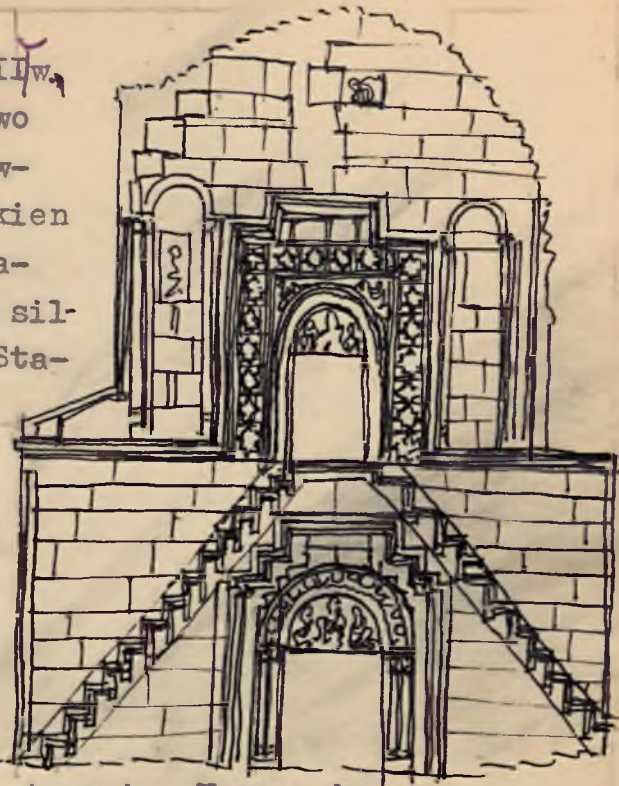 IIw.
wo
w-
kien
a-
sil-
Sta-